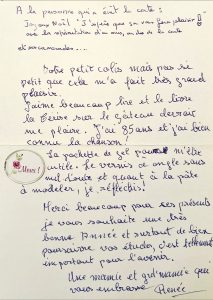 A la personne qui a écrit la carte :
Joyeux Noël ! J'espère que ça va vous plaire !
avec la représentation d'un
et
Votre petit colis mais pas si
petit que cela m'a fait très grand
plaisir.
J'aime beaucoup lire et le livre
la Cerise sur le gâteau devrait
me plaire. J'ai 85 ans et j'ai bien
connu la chanson !
La pochette de gel pourra m'être
utile. Le vernis ongle sans
nul doute et quant à la pâte
à modeler, je réfléchis !
Merci !
Merci beaucoup pour ces présents
je vous souhaite une très
bonne Année et surtout de bien
poursuivre vos études, c'est tellement
important pour l'avenir.
Une mamie et grd'mamie que
vous embrasse Renée